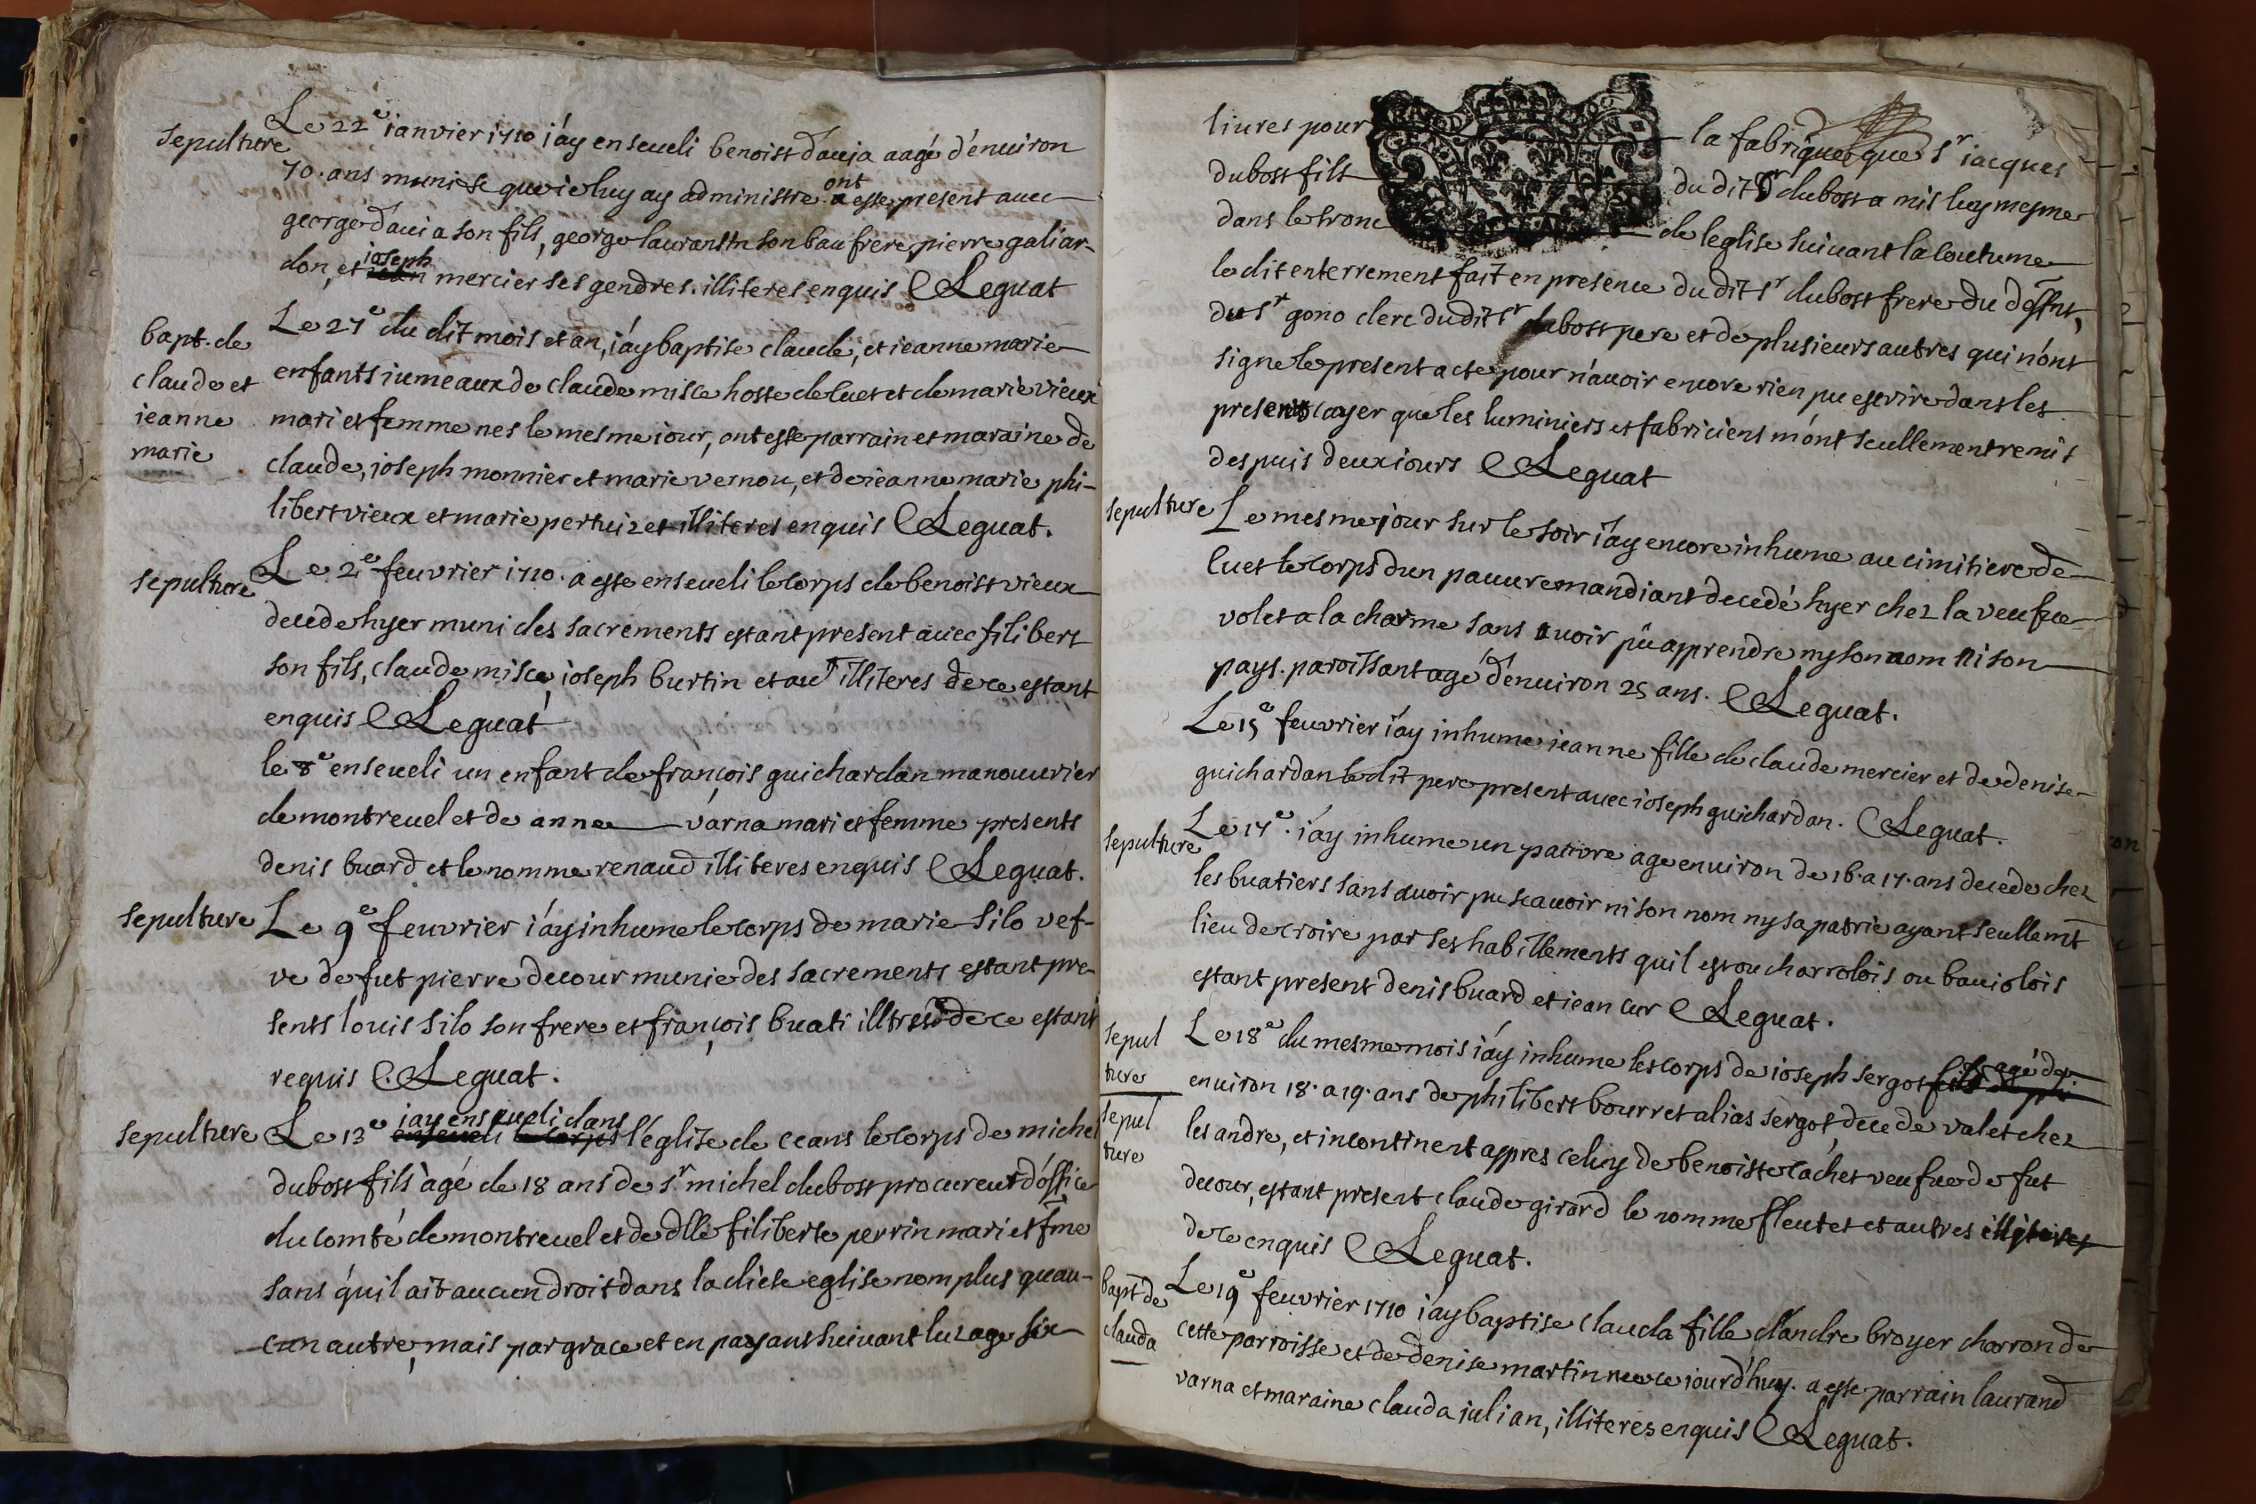 sepulture
Le 22e ianvier 1710 i'ay enseueli benoist dauia aagé d'enuiron
70. ans munis que ie luy ay administre ont esse present auec
george dauia son fils, george laurantin son bau frere, pierre galiar-
don, et ioseph mercier ses gendres. illiteres enquis Leguat
bapt. de
claude et
ieanne
marie
Le 27e du dit mois et an, i'ay baptise claude, et ieanne marie
enfants iumeaux de claude misce hoste de cuet et de marie vieux
mari et femme nes le mesme iour, ont esse parrain et maraine de
claude, ioseph monnier et marie vernou, et de ieanne marie phi-
libert vieux et marie pertuizet illiteres enquis Leguat.
sepulture
Le 2e feuvrier 1710. a esse enseueli le corps de benoist vieux
decede hyer muni des sacrements estant present auec filibert
son fils, claude misce, ioseph burtin et aut illiteres de ce estant
enquis Leguat
le 8e enseueli un enfant de françois guichardan manouurier
de montreuel et de anne varna mari et femme presents
denis buard et le nomme renaud illiteres enquis Leguat.
sepulture
Le 9e feuvrier i'ay inhume le corps de marie silo vef-
ve de fut pierre decour munie des sacrements estant pre-
sents louis silo son frere et françois buati illtres de ce estant
requis Leguat.
sepulture
Le 13e iay enseueli dans l'église de ceans le corps de michel
dubost fils àgé de 18 ans de sr michel dubost procureur d'office
du comté de montreuel et de dlle filiberte perrin mari et fme
sans qu'il ait aucun droit dans la dicte eglise nom plus quau-
cun autre, mais par grace et en payant suiuant luzage six
liures pour la fabrique que sr iacques
dubost fils du dit sr dubost a mis luy mesme
dans le tronc de leglise suiuant la coutume
le dit enterrement fait en presence du dit sr dubost frere du deffnt,
du sr gono clerc du dit sr dubost pere et de plusieurs autres qui n'ont
signe le present acte pour n'auoir encore rien pu escrire dans les
presents cayer que les luminiers et fabriciens m'ont seullement remis
despuis deux iours Leguat
sepulture
Le mesme jour sur le soir i'ay encore inhume au cimitiere de
Cuet le corps d'un pauure mandiant decedé hyer chez la veufue
volet a la charme sans auoir pû apprendre ny son nom ni son
pays. paroissant agé d'enuiron 25 ans. Leguat.
Le 15e feuvrier i'ay inhume ieanne fille de claude mercier et de denise
guichardan le dit pere present auec ioseph guichardan. Leguat.
sepulture
Le 17e. i'ay inhume un pauvre age enuiron de 16. a 17. ans decede chez
les buatiers sans auoir pu scauoir ni son nom ny sa patrie ayant seullemt
lieu de croire par ses habillements quil est ou charrolois ou bauiolois
estant present denis buard et iean cur Leguat.
sepul
ture
Le 18e du mesme mois i'ay inhume les corps de ioseph sergot agé de
enuiron 18. a 19. ans de philibert bourret alias sergot decede valet chez
sepul
ture
les andre, et incontinent appres celuy de benoiste cachet veufue de fut
decour, estant present claude girard le nomme fleutet et autres illiteres
de ce enquis Leguat.
bapt de
clauda
Le 19e feuvrier 1710 i'ay baptise clauda fille d'andre broyer charron de
cette parroisse et de denise martin nee ce iourd'huy. a esse parrain laurand
varna et maraine clauda julian, illiteres enquis Leguat.